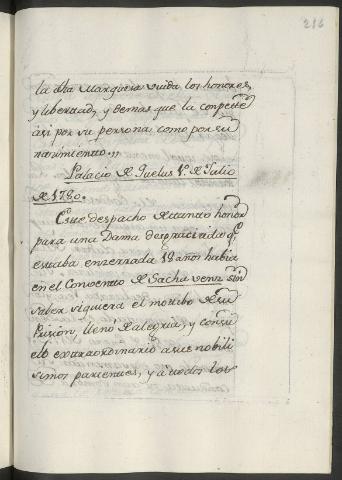 216
la dha Marquesa viuda los honores,
y libertad, y demas que la conpette
asi por su persona como por su
nacimiento.,,
Palacio de Quelus 1º de Julio
de 1780.
Este despacho de tanto honor
para una Dama desgraciada qe
estaba enzerrada 18 años habia
en el Convento de Sacha venz sin
saber siquiera el motibo de su
Prision, llenó de alegria, y consu
elo extraordinario a sus nobili
simos parientes, y á todos los